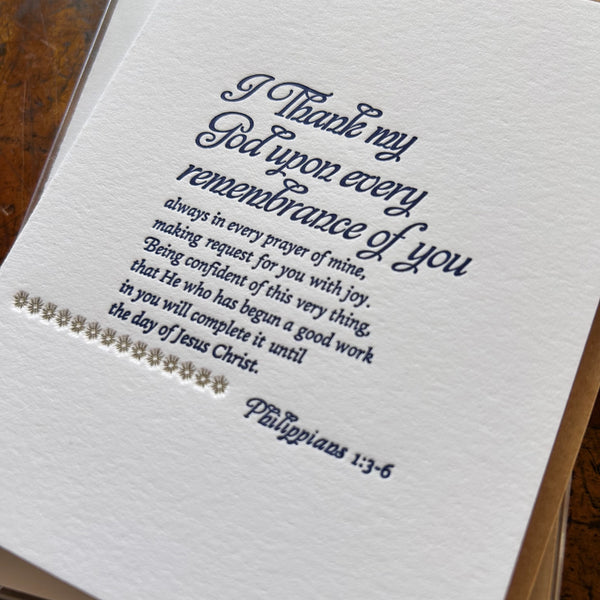 I Thank my
God upon every
remembrance of you
always in every prayer of mine,
making request for you with joy.
Being confident of this very thing,
that He who has begun a good work
in you will complete it until
the day of Jesus Christ.
Philippians 1:3-6